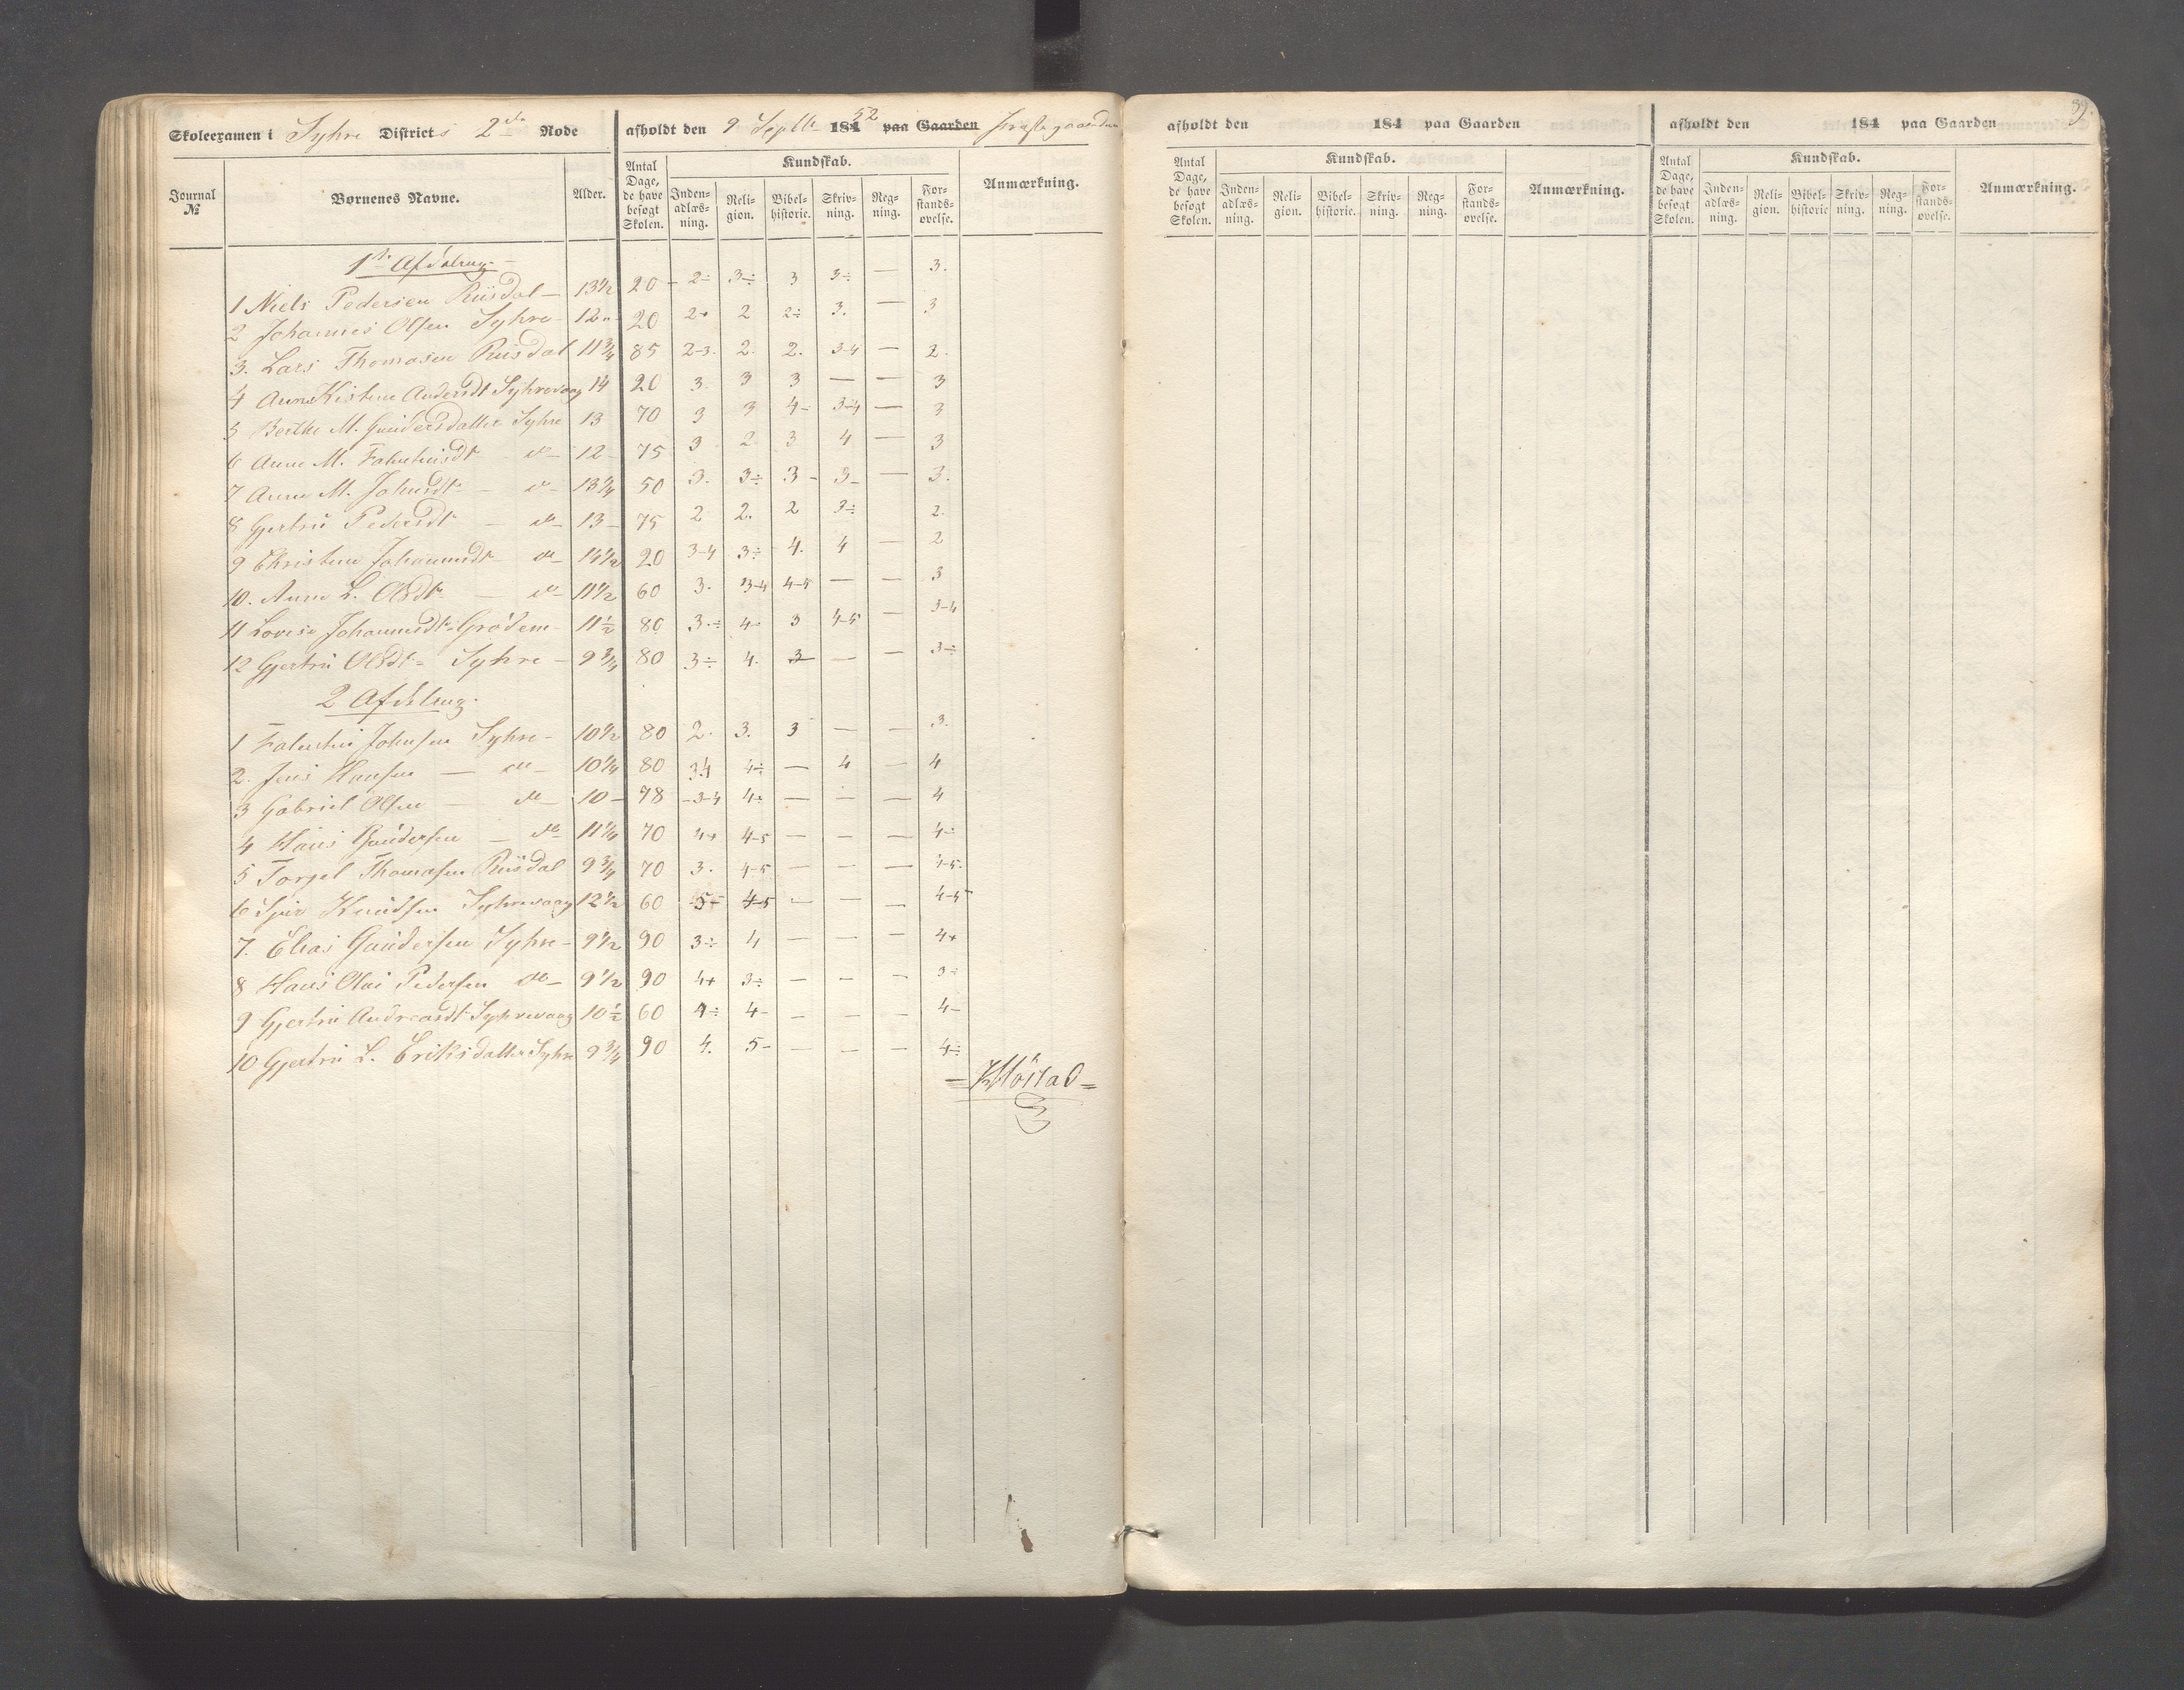 Skoleexamen i Syhre Districts 2de Rode
afholdt den 9 Septbr 18452 paa Gaarden Præstegaarden
Journal № Børnenes Navne. Alder. Antal Dage, de have besøgt Skolen. Kundskab. Inden-adlæs-ning. Reli-gion. Bibel-historie. Skriv-ning. Reg-ning. For-stands-øvelse. Anmærkning.
1ste Afdeling
1 Niels Pedersen Riisdal – 13½ 20 – 2÷ 3÷ 3 3÷ — 3.
2 Johannes Olsen Syhre – 12 " 20 2+ 2 2÷ 3. — 3
3. Lars Thomasen Riisdal 11¾ 85 2-3. 2. 2. 3-4 — 2.
4 Anne Kistine Andersdt Syhrevaag 14 20 3. 3 3 — — 3
5 Berthe M. Gundersdatter Syhre 13 70 3 3 4- 3-4 — 3
6 Anne M. Falentinsdt do – 12 – 75 3 2 3 4 — 3
7 Anne M. Johnsdt – do – 13¼ 50 3. 3÷ 3 - 3 – — 3.
8 Gjertrü Pedersdt – do – 13 – 75 2 2. 2 3÷ 2.
9 Christine Johannesdt do – 14½ 20 3-4 3÷ 4. 4 — 2
10. Anne L. Olsdt – do – 11½ 60 3. 3-4 4-5 — — 3
11 Lovise Johannesdt Grødem – 11½ 80 3÷ 4- 3 4-5 — 3-4
12 Gjertrü Olsdt – Syhre – 9¾ 80 3÷ 4. 3 — — 3÷
2 Afdeling.
1 Falentin Johnsen Syhre – 10½ 80 2. 3. 3 — — 3.
2. Jens Hansen — do – 10¼ 80 3-4 4÷ — 4 — 4
3 Gabriel Olsen – do – 10 – 78 – 3-4 4÷ — — — 4
4 Hans Gündersen – do 11¼ 70 4+ 4-5 — — — 4÷
5 Torgel Thomasen Riisdal 9¾ 70 3. 4-5 — — — 4-5.
6 Syver Knüdsen Syhrevaag 12½ 60 5+ 4-5 — — — 4-5
7. Elias Gündersen Syhre – 9½ 90 3÷ 4 — — — 4+
8 Hans Olai Pedersen do – 9½ 90 4+ 3÷ — — 3÷
9 Gjertrü Andreasdt Syhrevaag 10½ 60 4÷ 4- — — — 4–
10 Gjertrü L. Eriksdatter Syhre 9¾ 90 4. 5- — — — 4÷
89.
afholdt den 184 paa Gaarden
Antal Dage, de have besøgt Skolen. Kundskab. Inden-adlæs-ning. Reli-gion. Bibel-historie. Skriv-ning. Reg-ning. For-stands-øvelse. Anmærkning.
afholdt den 184 paa Gaarden
Antal Dage, de have besøgt Skolen. Kundskab. Inden-adlæs-ning. Reli-gion. Bibel-historie Skriv-ning. Reg-ning. For-stands-øvelse. Anmærkning.